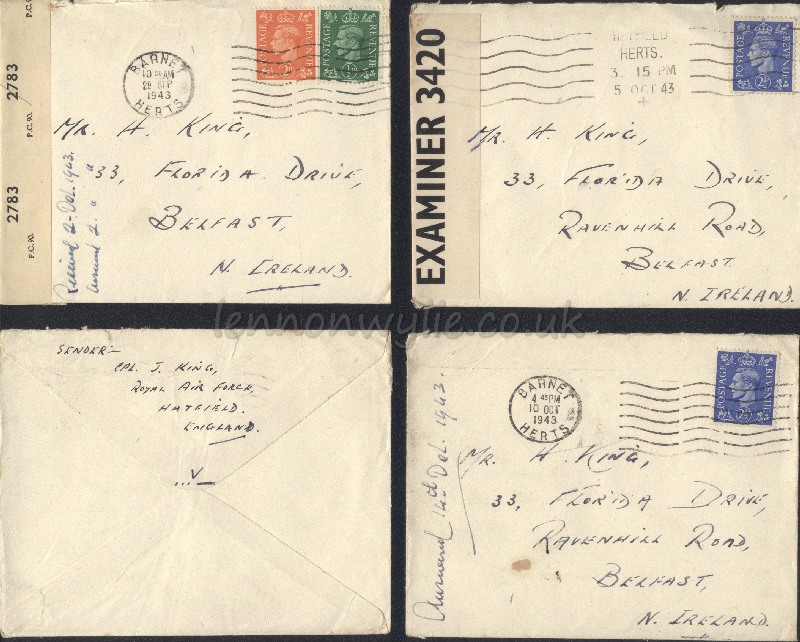 P.C. 90.
2783
P.C. 90.
2783
P.C. 90.
BARNET
10 AM
29 SEP
1943
HERTS
POSTAGE
REVENUE
2D
POSTAGE
REVENUE
½D
Mr. H. King,
33, Florida Drive,
Belfast,
N. Ireland.
Received 2nd Oct. 1943.
EXAMINER 3420
HATFIELD
HERTS.
3. 15 PM
5 OCT 43
+
POSTAGE
REVENUE
2½D
Mr. H. King,
33, Florida Drive,
Ravenhill Road,
Belfast.
N. Ireland.
lennonwylie.co.uk
SENDER:-
CPL. J. KING,
ROYAL AIR FORCE,
HATFIELD.
ENGLAND.
...V_
BARNET
4 45 PM
10 OCT
1943
HERTS
POSTAGE
REVENUE
2½D
Mr. H. King,
33, Florida Drive,
Ravenhill Road,
Belfast,
N. Ireland.
Answered 14th Oct. 1943.